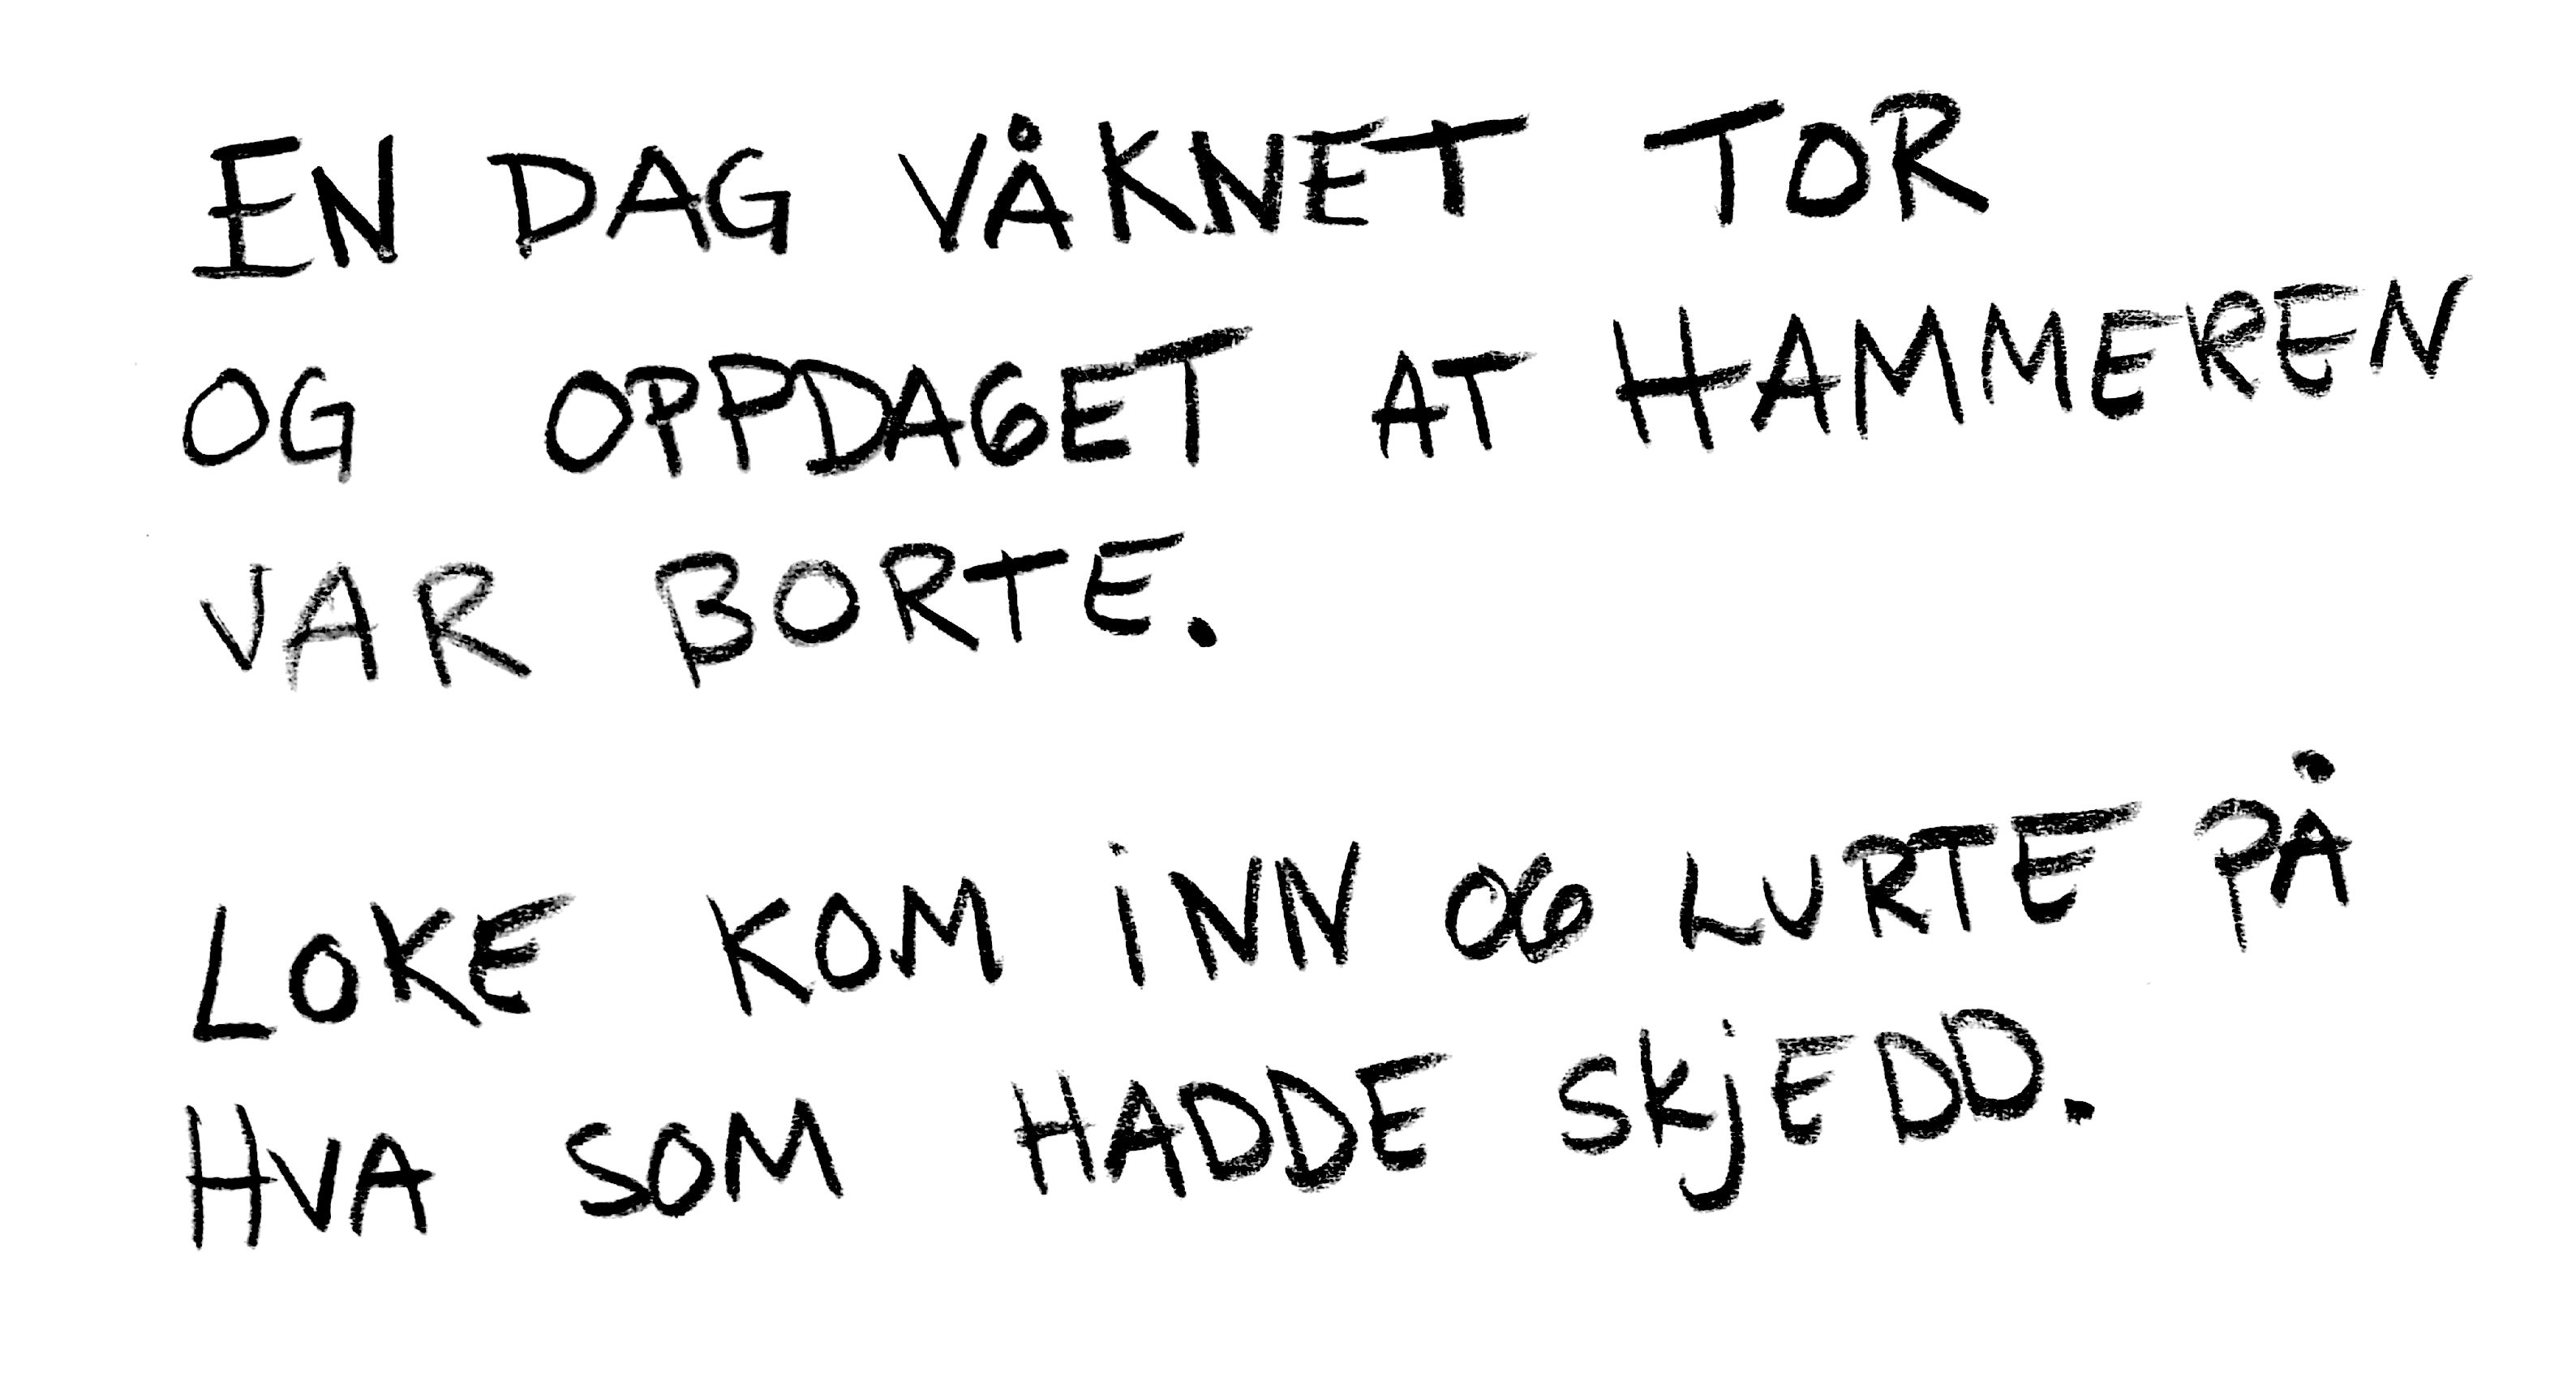 EN DAG VÅKNET TOR
OG OPPDAGET AT HAMMEREN
VAR BORTE.
LOKE KOM iNN OG LURTE PÅ
HVA SOM HADDE SKjEDD.